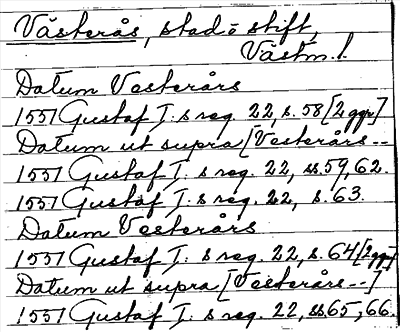 Västerås, stad o stift,
Västm. l.
Datum Vesterårs
1551 Gustaf I:s reg. 22, s. 58 [2 ggr]
Datum ut supra [Vesterårs--
1551 Gustaf I:s reg. 22, ss. 59, 62.
1551 Gustaf I:s reg. 22, s. 63.
Datum Vesterårs
1551 Gustaf I:s reg. 22, s. 64 [2 ggr]
Datum ut supra [Vesterårs--]
1551 Gustaf I:s reg. 22, ss. 65, 66.